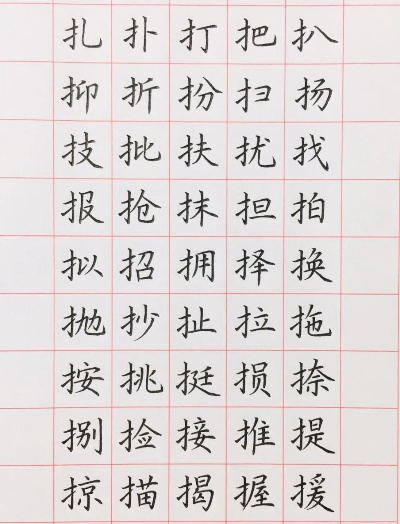 扎扑打把扒
抑折扮扫扬
技批扶扰找
报抢抹担拍
拟招拥择换
抛抄扯拉拖
按挑挺损捺
捌捡接推提
掠描揭握援